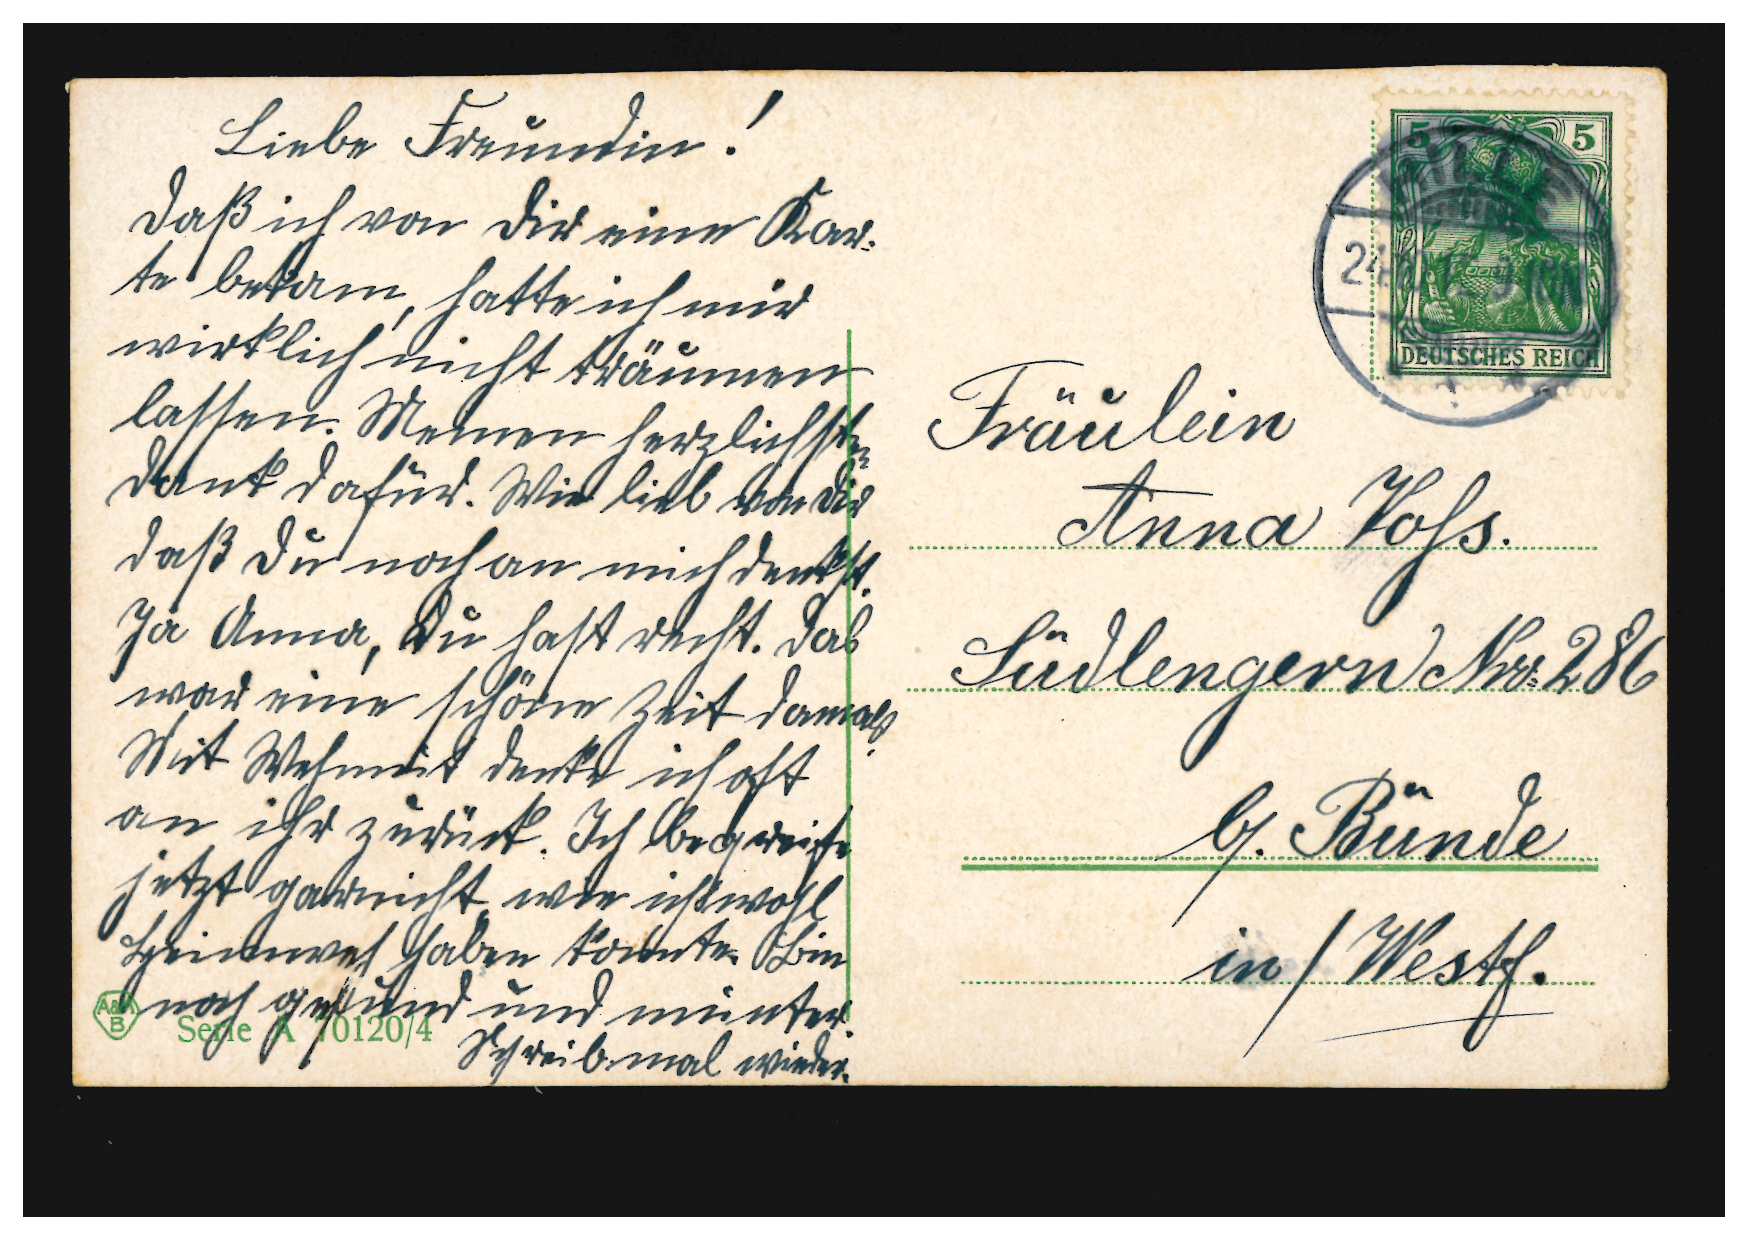 Liebe Freundin!
Daß ich von Dir eine Kar-
te bekam, hatte ich mir
wirklich nicht träumen
lassen. Meinen herzlichsten
Dank dafür. Wie lieb von Dir
daß Du noch an mich denkst.
Ja Anna, Du hast recht. Das
war eine schöne Zeit damals.
Mit Wehmut denke ich oft
an ihr zurück. Ich begreife
jetzt garnicht wie ich wohl
Heimweh haben konnte. Bin
noch gesund und munter.
Schreib mal wieder.
A&M
B
Serie A 70120/4
5 5
DEUTSCHES REICH
Fräulein
Anna Voss.
Südlengern Nro. 286
b/. Bünde
in/Westf.